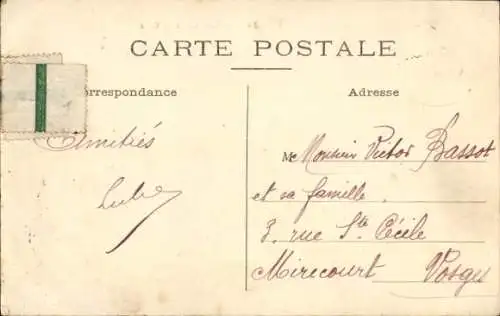 CARTE POSTALE
rrespondance
Adresse
Amitiés
M Monsieur Victor Bassot
et sa famille.
3, rue Ste Cécile
Mirecourt Vosges